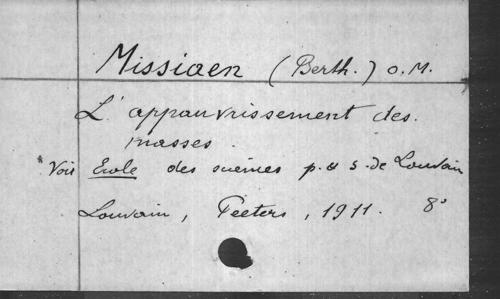 Missiaen (Berth.) O.M.
L'appauvrissement des
masses.
Voir Ecole des sciences p. & s. de Louvain
Louvain, Peeters, 1911. 8°